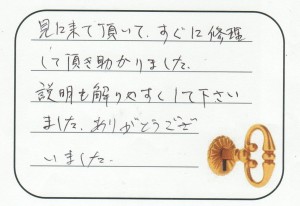 見に来て頂いて、すぐに修理
して頂き助かりました。
説明も解りやすくして下さい
ました。ありがとうござ
いました。